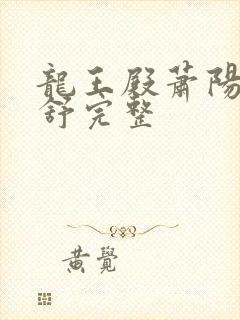 龍王殿蕭陽
舒完整
黃覺